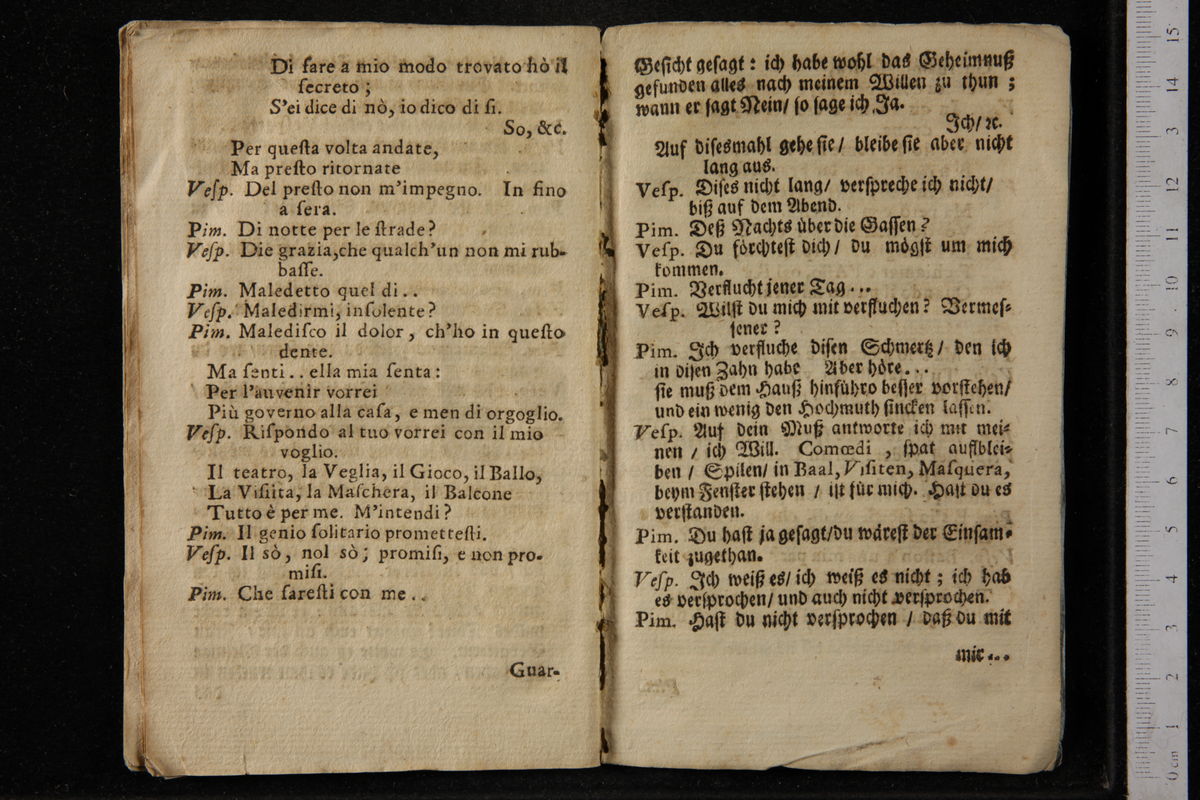 Di fare a mio modo trovato hò il
ſecreto ;
S'ei dice di nò, io dico di ſi.
So, &c.
Per queſta volta andate,
Ma preſto ritornate
Veſp. Del preſto non m'impegno. In ſino
a ſera.
Pim. Di notte per le ſtrade?
Veſp. Die grazia,che qualch'un non mi rub-
baſſe.
Pim. Maledetto quel di . .
Veſp. Maledirmi, inſolente?
Pim. Malediſco il dolor, ch'ho in queſto
dente.
Ma ſenti . . ella mia ſenta :
Per l'auvenir vorrei
Più governo alla caſa, e men di orgoglio.
Veſp. Riſpondo al tuo vorrei con il mio
voglio.
Il teatro, la Veglia, il Gioco, il Ballo,
La Viſiita, la Maſchera, il Balcone
Tutto è per me. M'intendi?
Pim. Il genio ſolitario prometteſti.
Veſp. Il sò, nol sò; promiſi, e non pro-
miſi.
Pim. Che fareſti con me . .
Guar-
Geſicht geſagt : ich habe wohl das Geheimnuß
gefunden alles nach meinem Willen zu thun ;
wann er ſagt Nein/ ſo ſage ich Ja.
Ich/ ꝛc.
Auf diſesmahl gehe ſie/ bleibe ſie aber nicht
lang aus.
Veſp. Diſes nicht lang/ verſpreche ich nicht/
biß auf dem Abend.
Pim. Deß Nachts über die Gaſſen?
Veſp. Du förchteſt dich/ du mögſt um mich
kommen.
Pim. Verflucht jener Tag . . .
Veſp. Wilſt du mich mit verfluchen? Vermeſ-
ſener?
Pim. Ich verfluche diſen Schmertz/ den ich
in diſen Zahn habe Aber höre. . .
ſie muß dem Hauß hinführo beſſer vorſtehen/
und ein wenig den Hochmuth ſincken laſſen.
Veſp. Auf dein Muß antworte ich mit mei-
nen / ich Will. Comœdi , ſpat auſblei-
ben / Spilen/ in Baal, Viſiten, Maſquera,
beym Fenſter ſtehen / iſt für mich. Haſt du es
verſtanden.
Pim. Du haſt ja geſagt/du wäreſt der Einſam-
keit zugethan.
Veſp. Ich weiß es/ ich weiß es nicht ; ich hab
es verſprochen/ und auch nicht verſprochen.
Pim. Haſt du nicht verſprochen / daß du mit
mir . . .